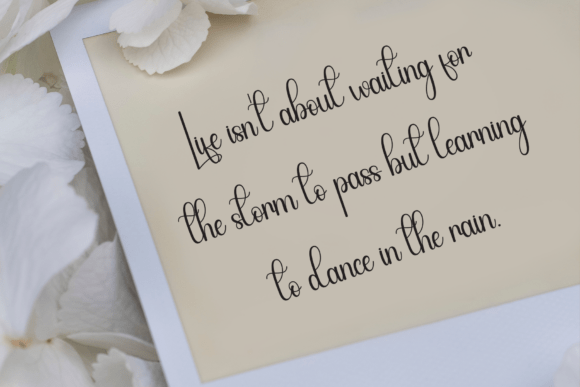 Life isn't about waiting for
the storm to pass but learning
to dance in the rain.